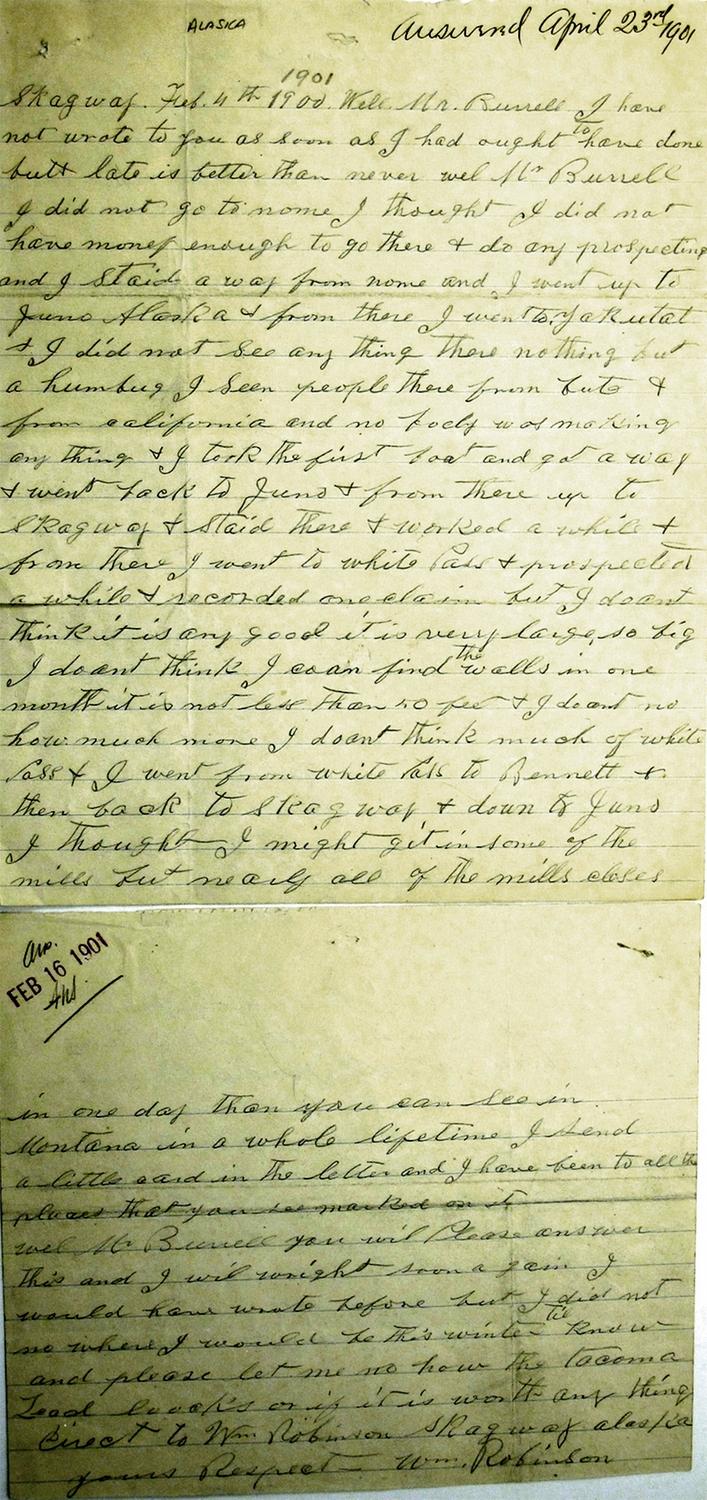 ALASKA
Answered April 23rd 1901
1901
Skagway. Feb. 4th 1900. Well Mr. Burrell I have
not wrote to you as soon as I had ought to have done
butt late is better than never wel Mr Burrell
I did not go to nome I thought I did not
have money enough to go there & do any prospecting
and I staid a way from nome and I went up to
Juno Alaska & from there I went to Yakutat
& I did not see any thing there nothing but
a humbug I seen people there from bute &
from california and no body was making
any thing & I took the first boat and got a way
& went back to Juno & from there up to
Skagway & staid there & worked a while &
from there I went to white Pass & prospected
a while & recorded one claim but I doant
think it is any good it is very large, so big
I doant think I coan find the walls in one
month it is not less than 50 feet & I doant no
how much more I doant think much of white
Pass & I went from white Pass to Bennett &
then back to Skagway & down to Juno
I thought I might git in some of the
mills but nearly all of the mills closes
Ans.
FEB 16 1901
in one day than you can see in
Montana in a whole lifetime I send
a little card in the letter and I have been to all the
places that you see marked on it
wel Mr Burrell you wil Please answer
this and I wil wright soon a gain I
would have wrote before but I did not
no where I would be this winter til know
and please let me no how the tacoma
Lead loocks or if it is worth any thing
Direct to Wm Robinson Skagway alaska
yours Respect Wm. Robinson